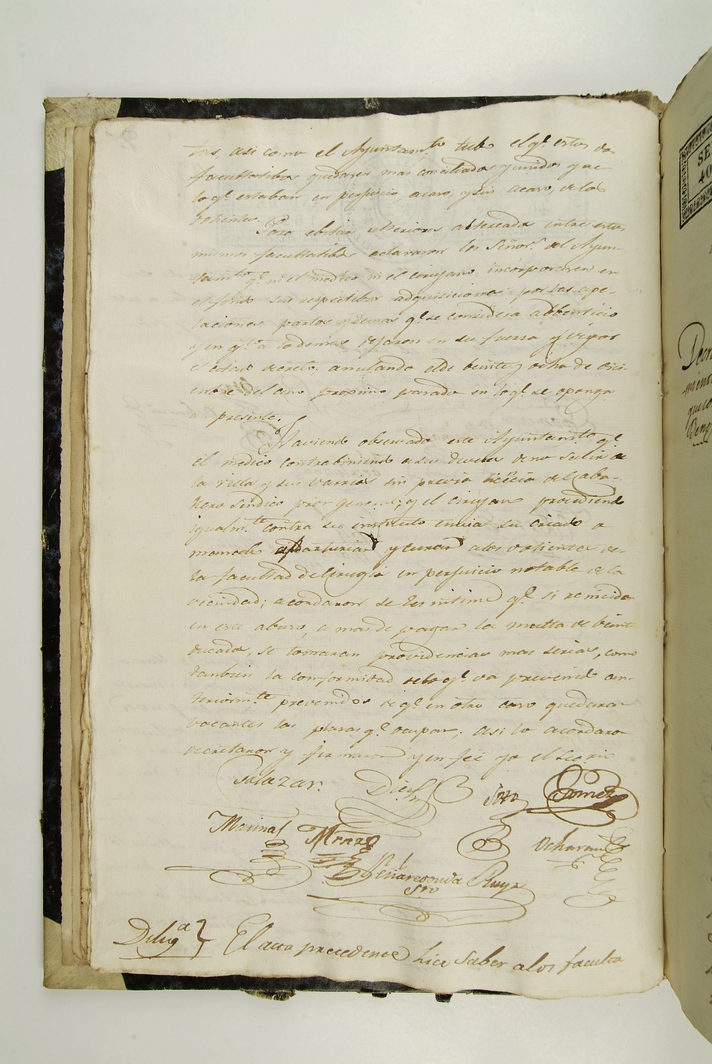 tas, asi como el Ayuntamto tubo el qe. estos dos
facultatibos quedasen mas conciliados y unidos y qe
lo qe. estaban en perjuicio acaso, y sin acaso, de los
dolientes.
Para ebitar ulteriores entre estos
mismos facultatibos aclararon los Señors. del Ayun-
tamto. qe. ni el medico ni el cirujano incorporasen en
sus respectibas adquisiciones por las ape-
laciones partos y demas qe. se considera adbenticio
y en qe. a lo demas dejaron en su fuerza y vigor
el citado decreto, anulando el de beinte y ocho de Dici-
embre del año proximo pasado en lo qe. se oponga
presente.
Haviendo observado este Ayuntamto qe.
el medico contrabiniendo a su deber de no salir de
la villa y sus varrios sin previa licencia del Caba-
llero Sindico pror general; y el cirujano procediendo
igualmte. contra su instituto embia su criado o
mancebo a y curar a los dolientes de
la facultad de cirugia en perjuicio notable de la
vecindad; acordaron se les intime qe. si reinciden
en este abuso, a mas de pagar la multa de beinte
ducados, se tomaran providencias mas serias, como
tambien la conformidad de lo qe. va prevenido an-
teriormte. prevenidos de qe. en otro caso quedaran
vacantes las plazas qe. ocupan; asi lo acordaron
decretaron y firmaron y en feé yo el Secrio
Salazar. Diez Gomez
Molinal Ucharan
Peñarredonda
Srio
Diliga El acto precedente hice saber a los faculta